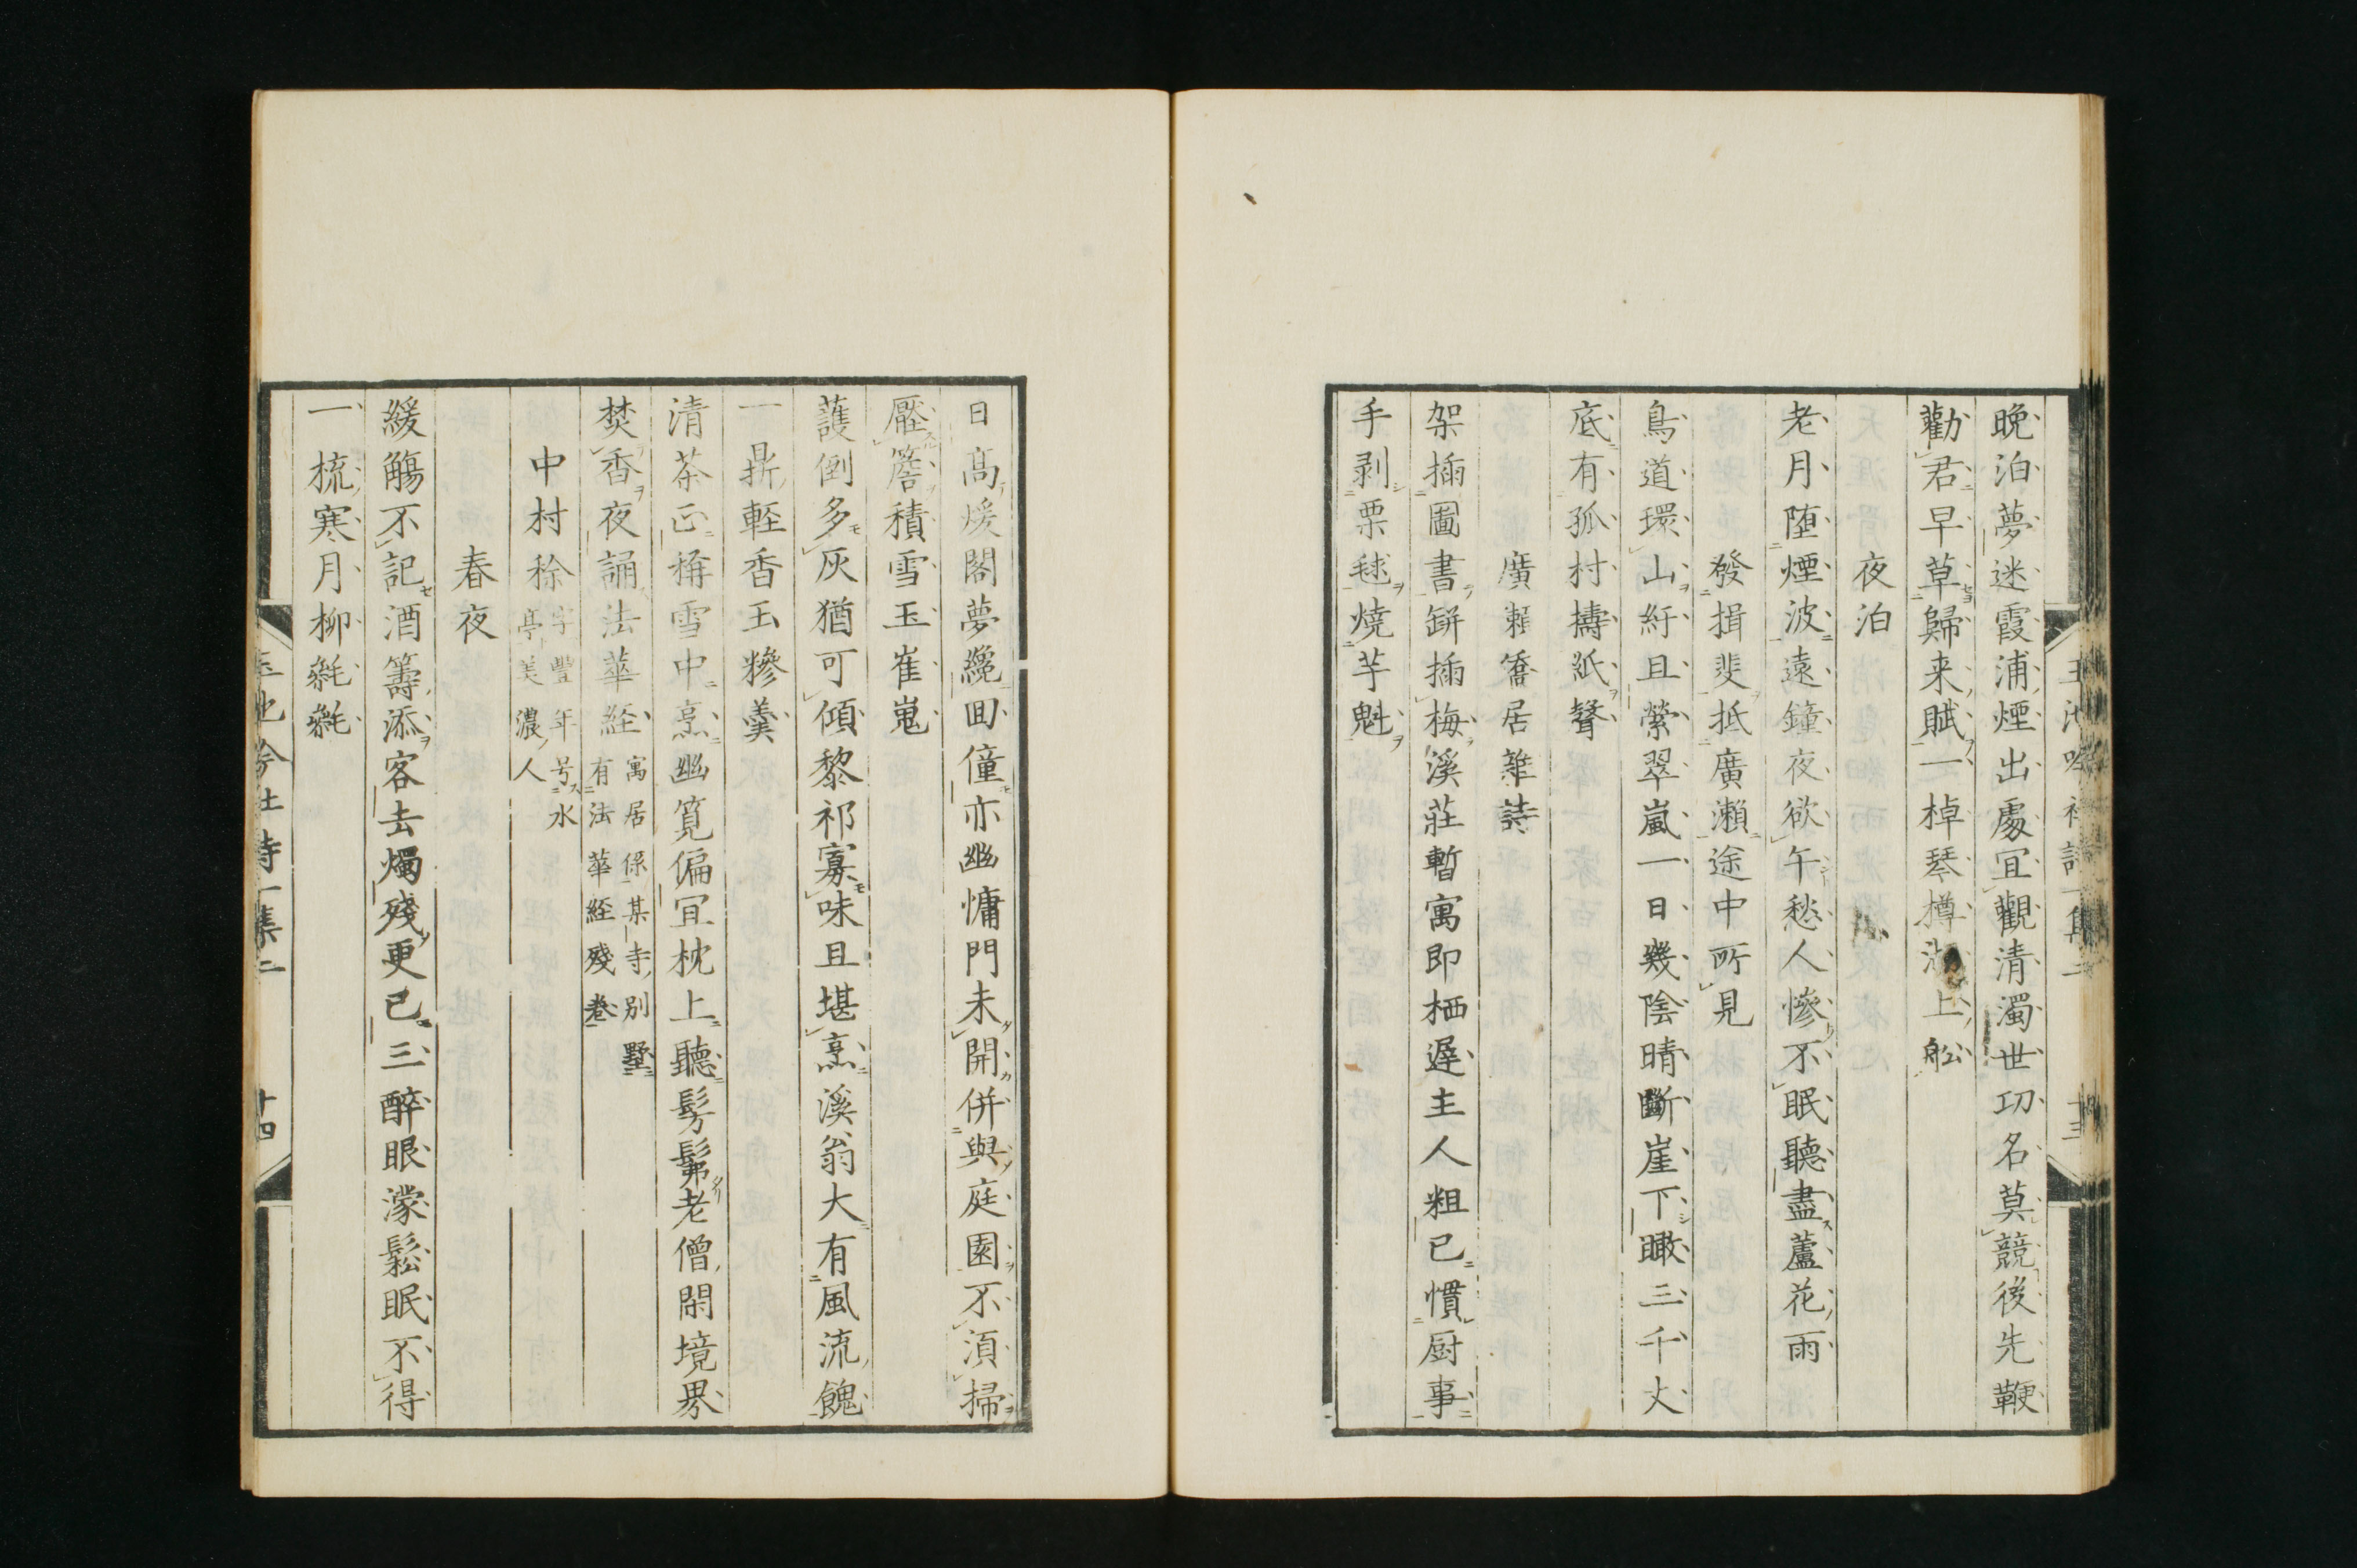 晩泊夢迷霞浦煙出處冝觀清濁世功名莫競後先鞭
勸君早草歸来賦一棹琴樽湖上舩
夜泊
老月堕煙波遠鐘夜欲午愁人慘不眠聽盡蘆花雨
發揖斐抵廣瀬途中所見
鳥道環山紆且縈翠嵐一日幾陰晴斷崖下瞰三千丈
底有孤村擣紙聲
廣瀬僑居雜詩
架插圖書缾插梅溪莊暫寓即栖遅主人粗已慣厨事
手剥栗毬燒芋魁
日高煖閣夢纔回僮亦幽慵門未開併與庭園不須掃
壓簷積雪玉崔嵬
護倒多灰猶可傾黎祁寡味且堪烹溪翁大有風流餽
一鼎軽香玉糝羹
清茶正稱雪中烹幽寛偏冝枕上聽髣髴老僧閑境界
焚香夜誦法華経寓居係某寺別墅
有法華経殘巻
中村稌字豐年号水
亭美濃人
春夜
緩觴不記酒籌添客去燭殘更已三醉眼濛鬆眠不得
一梳寒月柳毿毿
玉池吟社詩一集二
十四